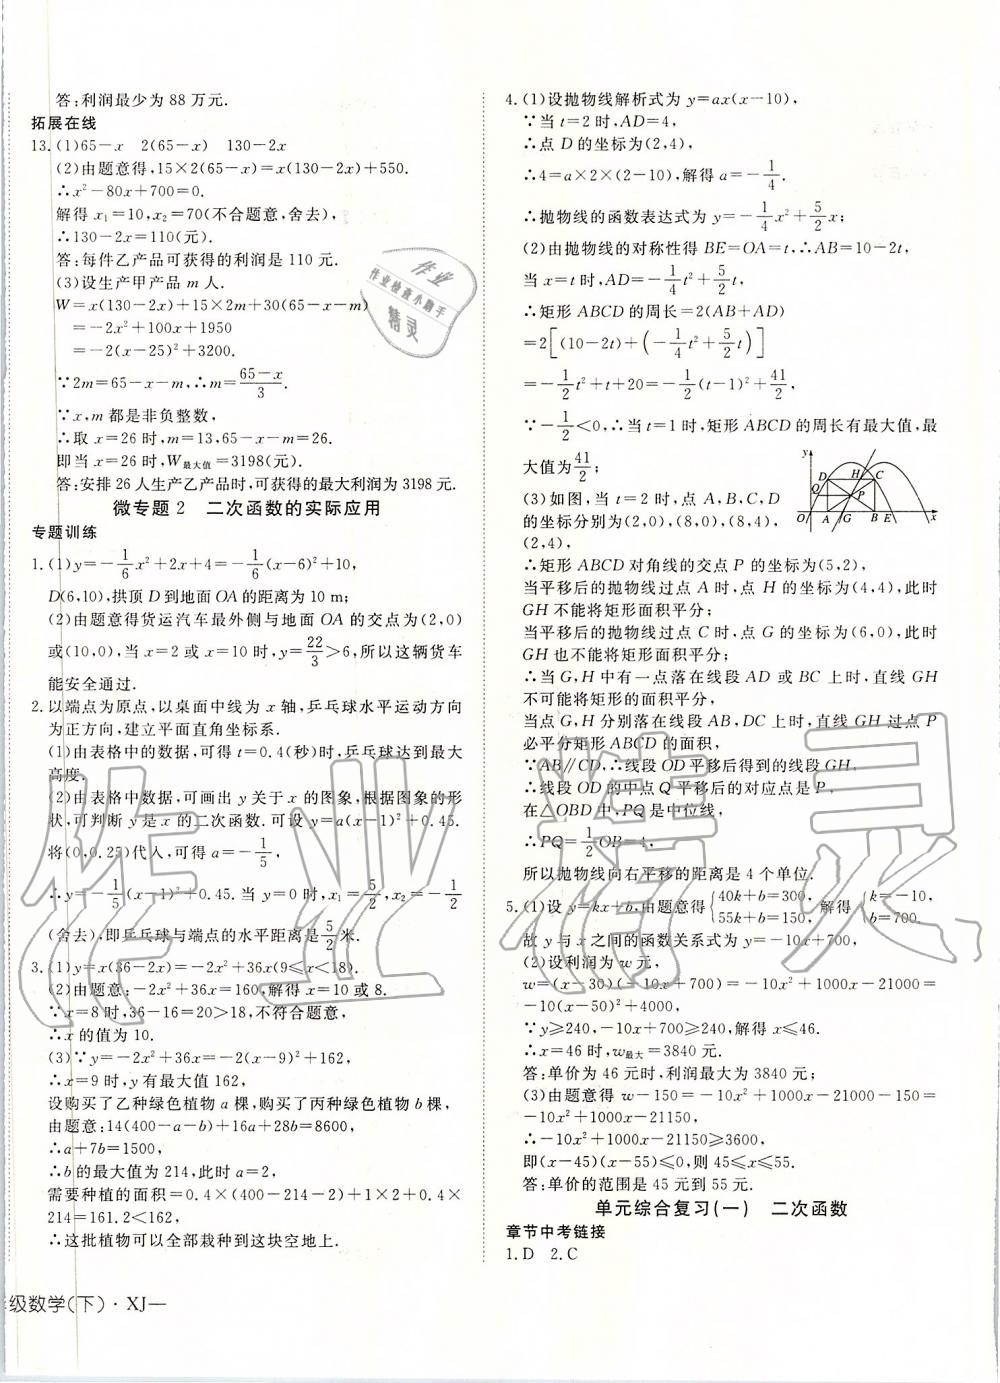 答:利润最少为 88 万元.
拓展在线
13.(1)65-x 2(65-x) 130-2x
(2)由题意得,15×2(65-x)=x(130-2x)+550.
∴x²-80x+700=0.
解得 x₁=10,x₂=70(不合题意,舍去),
∴130-2x=110(元).
答:每件乙产品可获得的利润是 110 元.
(3)设生产甲产品 m 人.
W=x(130-2x)+15×2m+30(65-x-m)
=-2x²+100x+1950
=-2(x-25)²+3200.
∵2m=65-x-m,∴m=(65-x)/3.
∵x,m 都是非负整数,
∴取 x=26 时,m=13,65-x-m=26.
即当 x=26 时,W最大值=3198(元).
答:安排 26 人生产乙产品时,可获得的最大利润为 3198 元.
微专题 2 二次函数的实际应用
专题训练
1.(1)y=-1/6x²+2x+4=-1/6(x-6)²+10,
D(6,10),拱顶 D 到地面 OA 的距离为 10 m;
(2)由题意得货运汽车最外侧与地面 OA 的交点为(2,0)
或(10,0),当 x=2 或 x=10 时,y=22/3>6,所以这辆货车
能安全通过.
2.以端点为原点,以桌面中线为 x 轴,乒乓球水平运动方向
为正方向,建立平面直角坐标系.
(1)由表格中的数据,可得 t=0.4(秒)时,乒乓球达到最大
高度.
(2)由表格中数据,可画出 y 关于 x 的图象,根据图象的形
状,可判断 y 是 x 的二次函数.可设 y=a(x-1)²+0.45.
将(0,0.25)代入,可得 a=-1/5,
∴y=-1/5(x-1)²+0.45.当 y=0 时,x₁=5/2,x₂=-1/2
(舍去),即乒乓球与端点的水平距离是5/2米.
3.(1)y=x(36-2x)=-2x²+36x(9≤x<18).
(2)由题意:-2x²+36x=160,解得 x=10 或 8.
∵x=8 时,36-16=20>18,不符合题意,
∴x 的值为 10.
(3)∵y=-2x²+36x=-2(x-9)²+162,
∴x=9 时,y 有最大值 162,
设购买了乙种绿色植物 a 棵,购买了丙种绿色植物 b 棵,
由题意:14(400-a-b)+16a+28b=8600,
∴a+7b=1500,
∴b 的最大值为 214,此时 a=2,
需要种植的面积=0.4×(400-214-2)+1×2+0.4×
214=161.2<162,
∴这批植物可以全部栽种到这块空地上.
级数学(下)·XJ—
4.(1)设抛物线解析式为 y=ax(x-10),
∵当 t=2 时,AD=4,
∴点 D 的坐标为(2,4),
∴4=a×2×(2-10),解得 a=-1/4.
∴抛物线的函数表达式为 y=-1/4x²+5/2x;
(2)由抛物线的对称性得 BE=OA=t,∴AB=10-2t,
当 x=t 时,AD=-1/4t²+5/2t,
∴矩形 ABCD 的周长=2(AB+AD)
=2[(10-2t)+(-1/4t²+5/2t)]
=-1/2t²+t+20=-1/2(t-1)²+41/2,
∵-1/2<0,∴当 t=1 时,矩形 ABCD 的周长有最大值,最
大值为41/2;
(3)如图,当 t=2 时,点 A,B,C,D
的坐标分别为(2,0),(8,0),(8,4),
(2,4),
y D H C Q P O A G B E x
∴矩形 ABCD 对角线的交点 P 的坐标为(5,2),
当平移后的抛物线过点 A 时,点 H 的坐标为(4,4),此时
GH 不能将矩形面积平分;
当平移后的抛物线过点 C 时,点 G 的坐标为(6,0),此时
GH 也不能将矩形面积平分;
∴当 G,H 中有一点落在线段 AD 或 BC 上时,直线 GH
不可能将矩形的面积平分,
当点 G,H 分别落在线段 AB,DC 上时,直线 GH 过点 P
必平分矩形 ABCD 的面积,
∵AB∥CD,∴线段 OD 平移后得到的线段 GH,
∴线段 OD 的中点 Q 平移后的对应点是 P,
在△OBD 中,PQ 是中位线,
∴PQ=1/2OB=4,
所以抛物线向右平移的距离是 4 个单位.
5.(1)设 y=kx+b,由题意得{40k+b=300, 55k+b=150, 解得{k=-10, b=700.
故 y 与 x 之间的函数关系式为 y=-10x+700.
(2)设利润为 w 元,
w=(x-30)(-10x+700)=-10x²+1000x-21000=
-10(x-50)²+4000,
∵y≥240,-10x+700≥240,解得 x≤46.
∴x=46 时,w最大=3840 元.
答:单价为 46 元时,利润最大为 3840 元.
(3)由题意得 w-150=-10x²+1000x-21000-150=
-10x²+1000x-21150,
∴-10x²+1000x-21150≥3600,
即(x-45)(x-55)≤0,则 45≤x≤55.
答:单价的范围是 45 元到 55 元.
单元综合复习(一) 二次函数
章节中考链接
1.D 2.C
作业
作业检查小助手
精灵
作业精灵